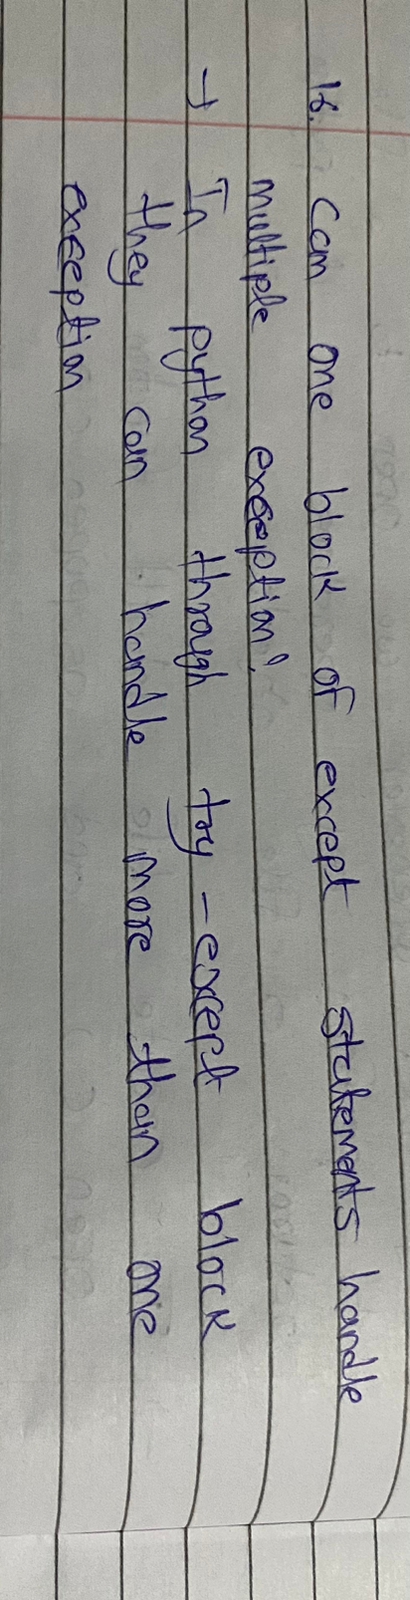 16. Can one block of except statements handle
multiple exception?
→ In python through try - except block
they can handle more than one
exception